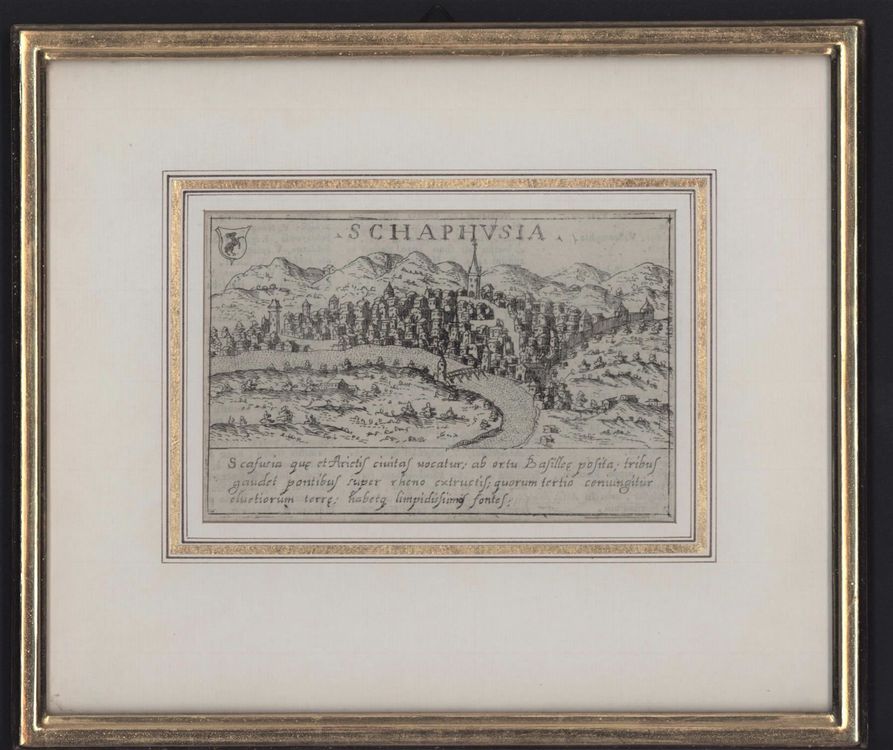 SCHAPHVSIA
Scafusia quę et Arietis civitas vocatur, ab ortu Basilleę posita, tribus
gaudet pontibus super rheno extructis; quorum tertio coniungitur
elvetiorum terrę; habetq limpidissimos fontes;